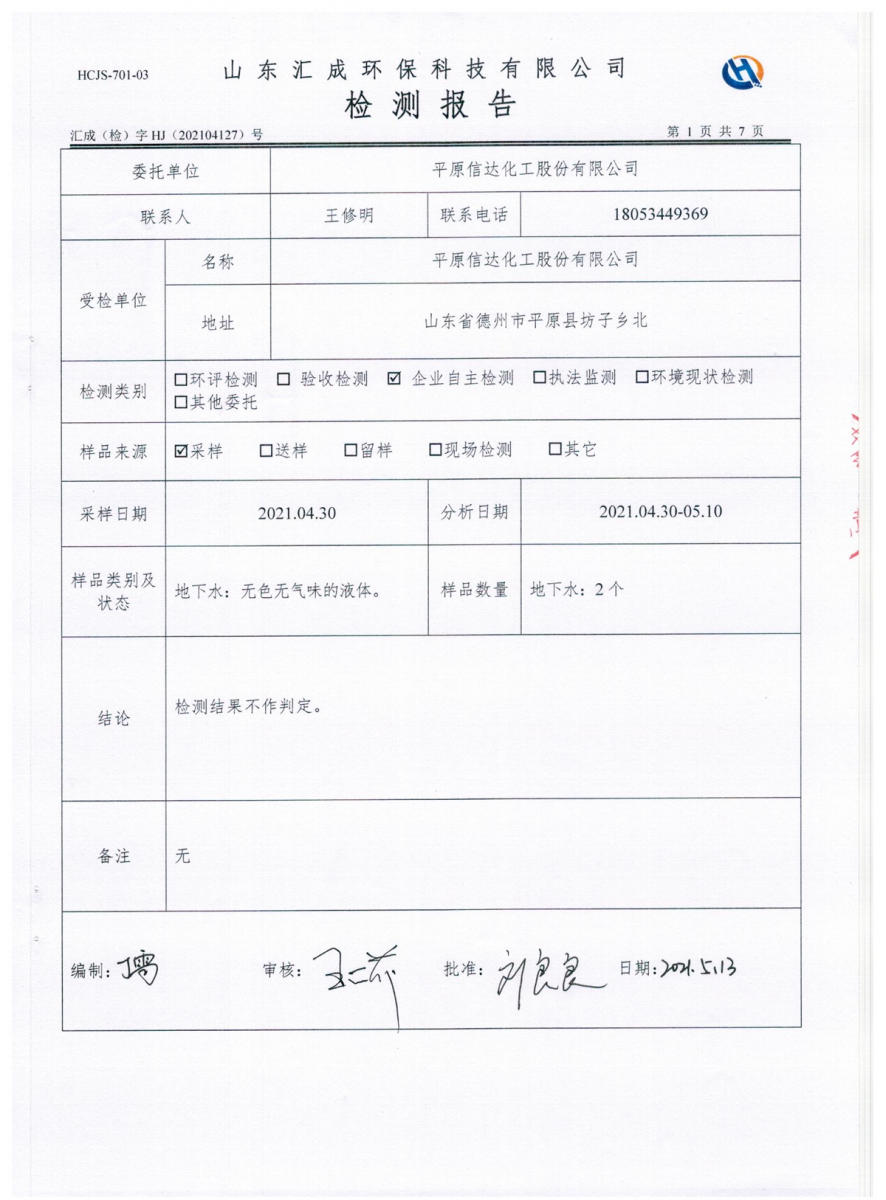 HCJS-701-03
山东汇成环保科技有限公司
检测报告
汇成（检）字 HJ（202104127）号
第 1 页 共 7 页
委托单位 平原信达化工股份有限公司
联系人 王修明 联系电话 18053449369
受检单位 名称 平原信达化工股份有限公司
地址 山东省德州市平原县坊子乡北
检测类别 ☐环评检测 ☐ 验收检测 ☑ 企业自主检测 ☐执法监测 ☐环境现状检测
☐其他委托
样品来源 ☑采样 ☐送样 ☐留样 ☐现场检测 ☐其它
采样日期 2021.04.30 分析日期 2021.04.30-05.10
样品类别及
状态
地下水：无色无气味的液体。 样品数量 地下水：2 个
结论 检测结果不作判定。
备注 无
编制： 审核： 批准：刘良良 日期：2021.5.13